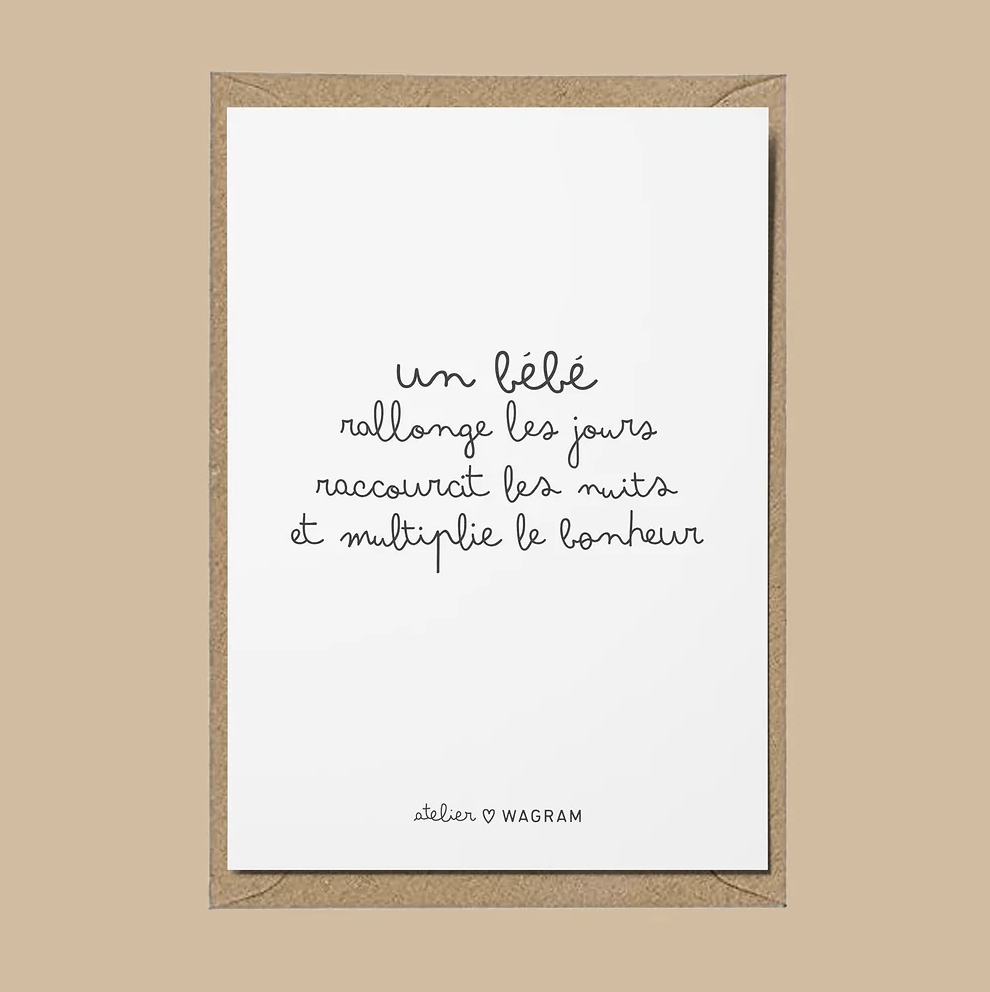 un bébé
rallonge les jours
raccourcit les nuits
et multiplie le bonheur
atelier ♡ WAGRAM